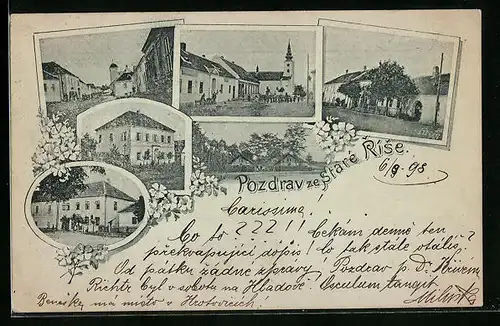 Pozdrav ze Staré Říše.
6/8 98
Carissima!
Co to ???!! Čekám denně ten
překvapující dopis! Co tak stále otálíš?
Od pátku žádné zprávy. Pozdrav p. Dr
Richtr byl v sobotu na Hladově. Osculum tangit
Benešky má místo v Hrotovicích!